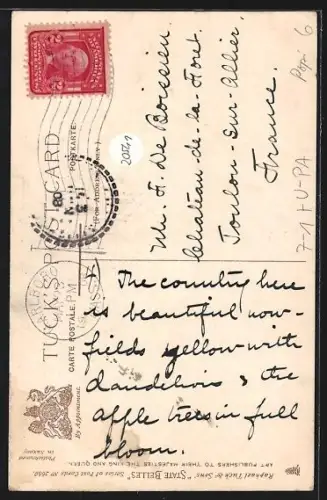 TUCK'S POST CARD
CARTE POSTALE.
POSTKARTE.
(For Address Only)
20541
Mr. A. De Boissieu
Château-de-la-Font.
Toulon-sur-Allier.
France.
6
The country here
is beautiful now-
fields yellow with
dandelions & the
apple trees in full
bloom.
By Appointment.
Photochromed
in Saxony
Raphael Tuck & Sons'
"STATE BELLES"
Series of Post Cards No
ART PUBLISHERS TO THEIR MAJESTIES THE KING AND QUEEN.